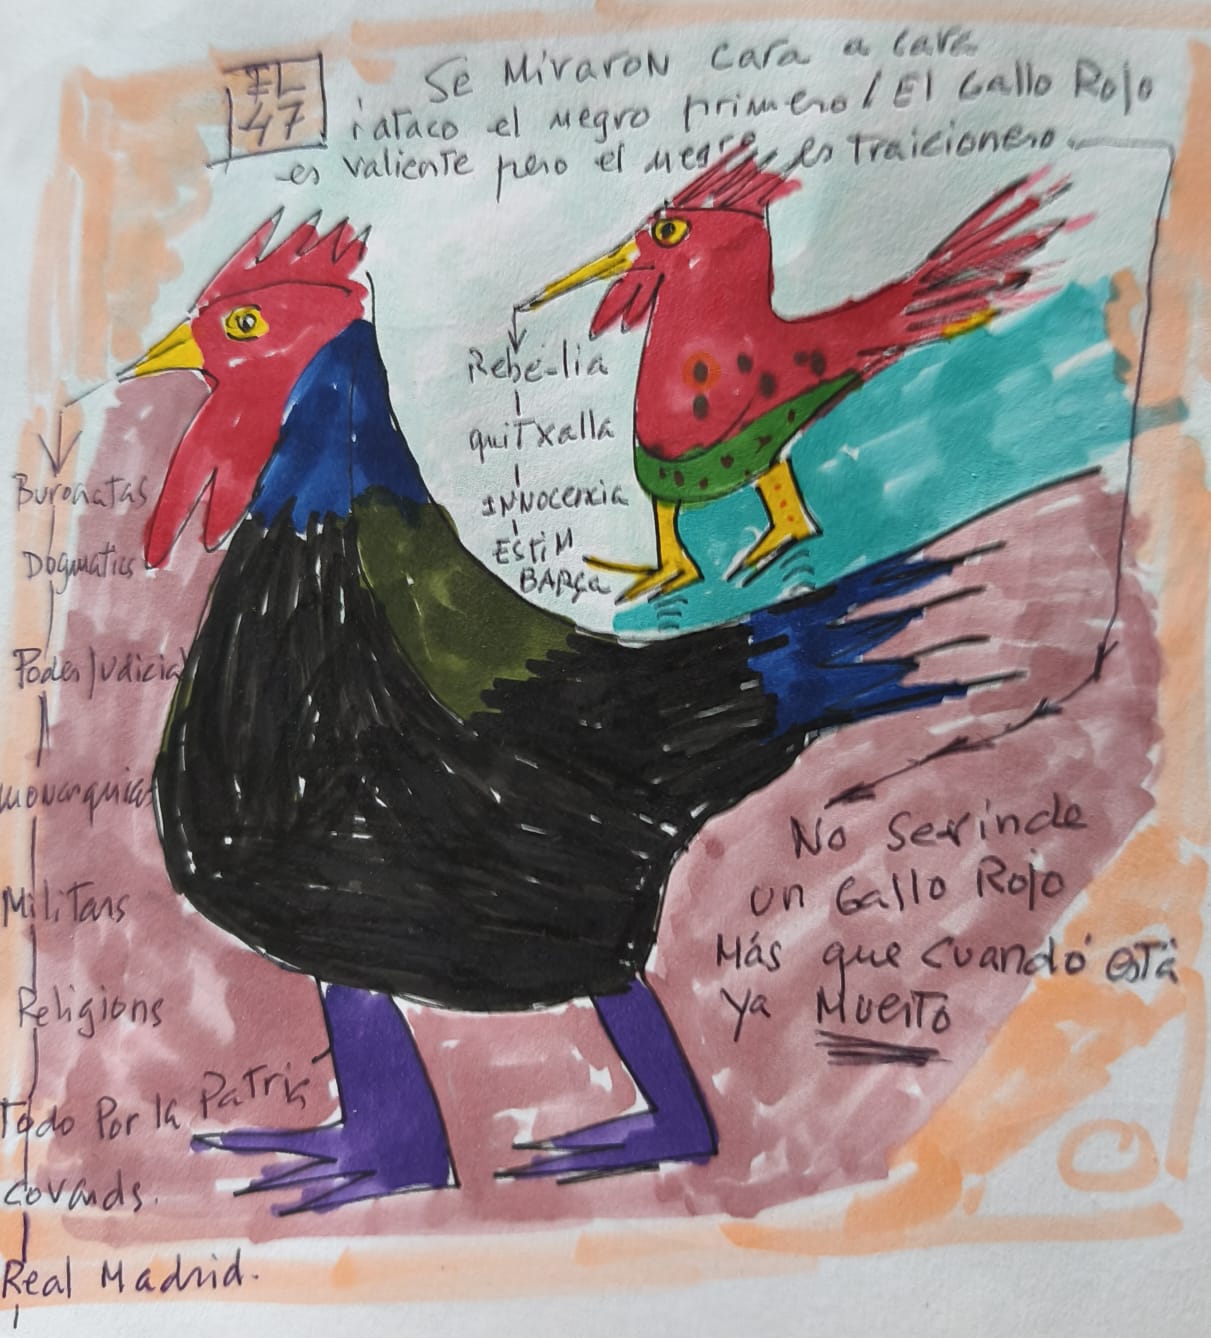 EL
47
Se Miraron cara a cara
i ataco el negro primero / El Gallo Rojo
es valiente pero el negro es traicionero
Rebe-lia
quitxalla
INNocencia
ESTIM
BARÇa
Buronatas
Dogmatics
Poder Judicial
Monarquias
Militars
Religions
Todo Por la Patria
covards.
Real Madrid.
No serinde
un Gallo Rojo
Más que cuando está
ya Muerto